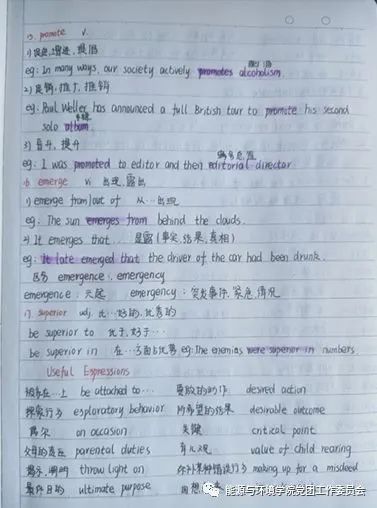 15. promote v.
1) 促进, 增进, 提倡
eg: In many ways, our society actively promotes alcoholism.
2) 促销, 推广, 推销
eg: Paul Weller has announced a full British tour to promote his second
solo album.
3) 晋升, 提升
eg: I was promoted to editor and then editorial director.
emerge vi 出现, 露出
1) emerge from/out of 从…出现
eg: The sun emerges from behind the clouds.
2) It emerges that … 显露 (事实, 结果, 真相)
eg: It late emerged that the driver of the car had been drunk.
区分 emergence, emergency
emergence: 出现 emergency: 突发事件 紧急情况
17 superior adj. 比…好的, 优秀的
be superior to 优于, 好于…
be superior in 在…方面占优势 eg: The enemies were superior in numbers.
Useful Expressions
被系在…上 be attached to … 要做的动作 desired action
探索行为 exploratory behavior 所希望的结果 desirable outcome
偶尔 on occasion 关键 critical point
父母的责任 parental duties 育儿观 value of child rearing
揭示, 阐明 throw light on 弥补某种错误行为 making up for a misdeed
最终目的 ultimate purpose
能源与环境学院党团工作委员会